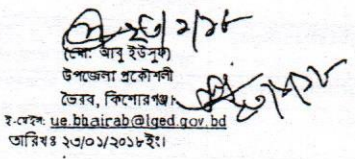 ২৩/১/১৮
(মো: আবু ইউসুফ)
উপজেলা প্রকৌশলী
ভৈরব, কিশোরগঞ্জ।
২৩/১/১৮
ই-মেইল: ue.bhairab@lged.gov.bd
তারিখঃ ২৩/০১/২০১৮ইং।